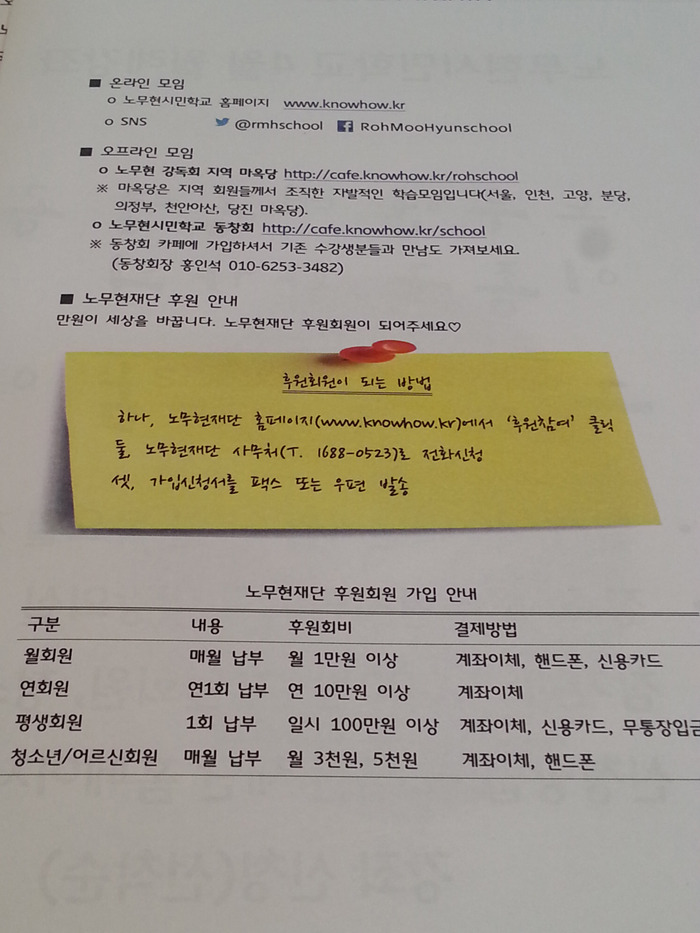 ■ 온라인 모임
o 노무현시민학교 홈페이지 www.knowhow.kr
o SNS @rmhschool RohMooHyunschool
■ 오프라인 모임
o 노무현 강독회 지역 마옥당 http://cafe.knowhow.kr/rohschool
※ 마옥당은 지역 회원들께서 조직한 자발적인 학습모임입니다(서울, 인천, 고양, 분당,
의정부, 천안아산, 당진 마옥당).
o 노무현시민학교 동창회 http://cafe.knowhow.kr/school
※ 동창회 카페에 가입하셔서 기존 수강생분들과 만남도 가져보세요.
(동창회장 홍인석 010-6253-3482)
■ 노무현재단 후원 안내
만원이 세상을 바꿉니다. 노무현재단 후원회원이 되어주세요♡
후원회원이 되는 방법
하나, 노무현재단 홈페이지(www.knowhow.kr)에서 '후원참여' 클릭
둘, 노무현재단 사무처(T. 1688-0523)로 전화신청
셋, 가입신청서를 팩스 또는 우편 발송
노무현재단 후원회원 가입 안내
구분 내용 후원회비 결제방법
월회원 매월 납부 월 1만원 이상 계좌이체, 핸드폰, 신용카드
연회원 연1회 납부 연 10만원 이상 계좌이체
평생회원 1회 납부 일시 100만원 이상 계좌이체, 신용카드, 무통장입금
청소년/어르신회원 매월 납부 월 3천원, 5천원 계좌이체, 핸드폰